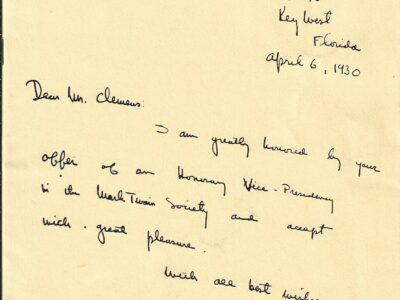 Key West
Florida
April 6, 1930
Dear Mr. Clemens:
I am greatly honored by your
offer of an Honorary Vice-Presidency
in the Mark Twain Society and accept
with great pleasure.
With all best wishes